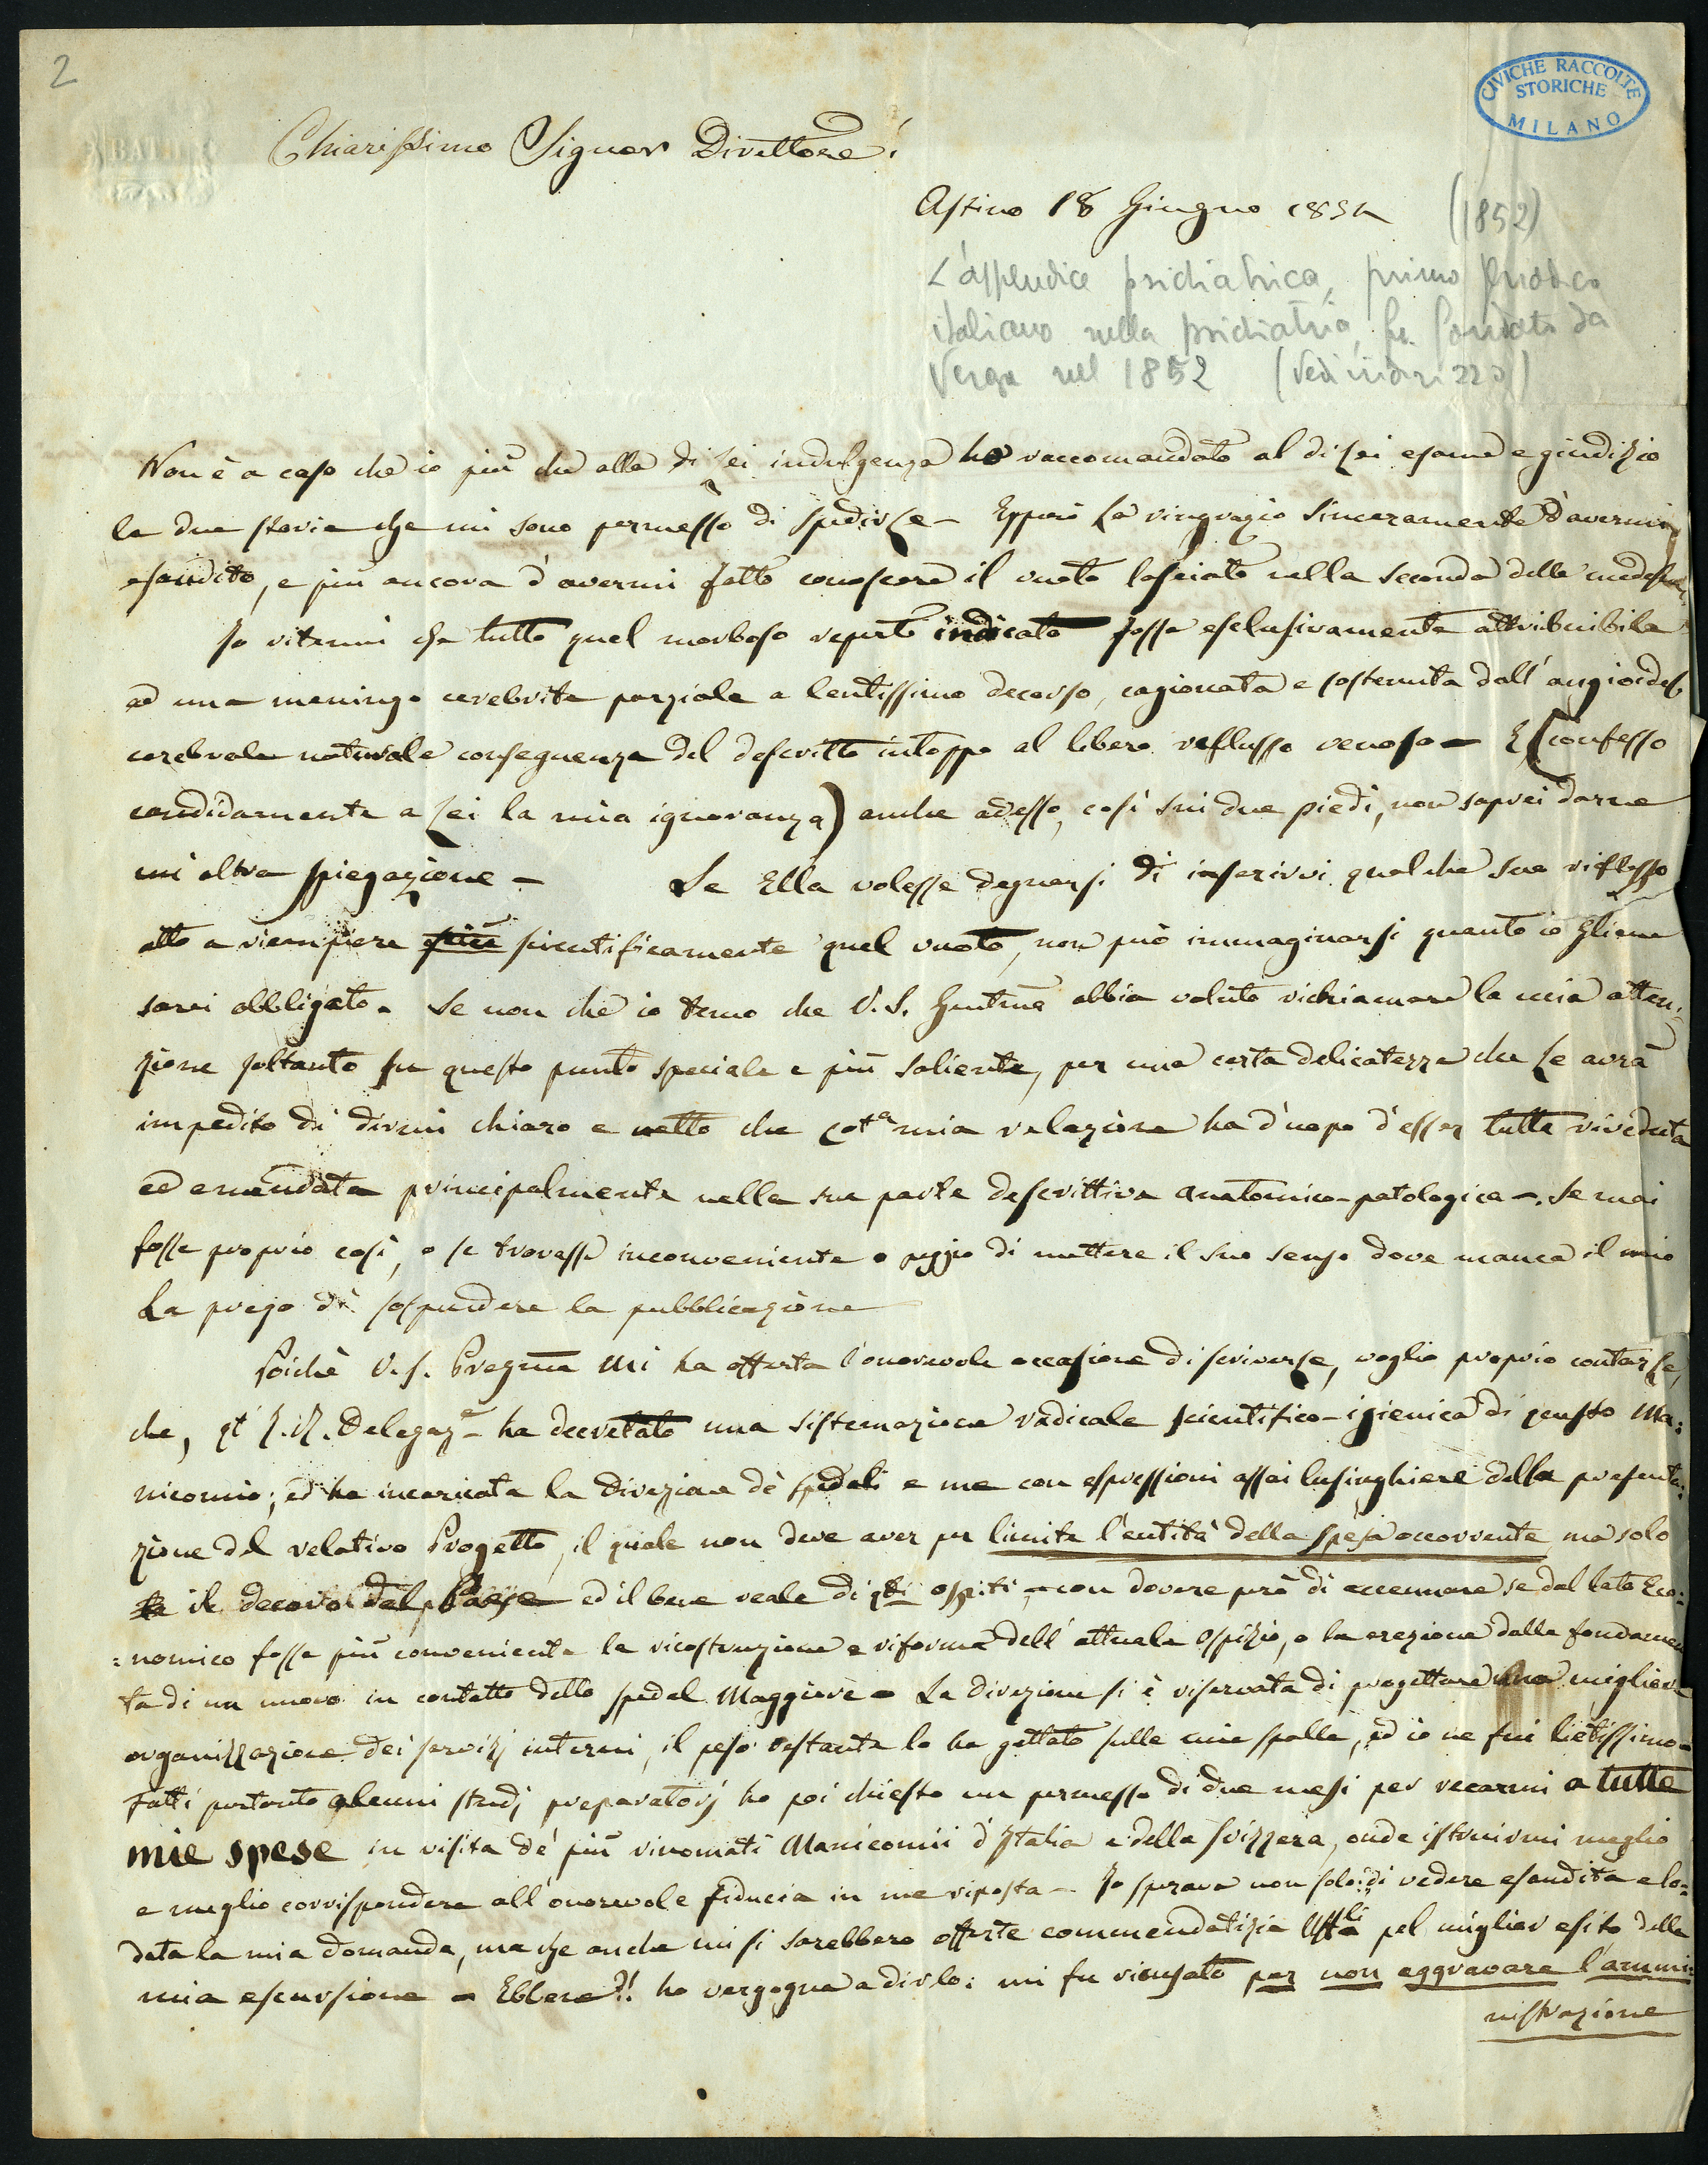 2
CIVICHE RACCOLTE
STORICHE
MILANO
BATH
Chiarissimo Signor Direttore!
Astino 18 Giugno 1852 (1852)
L'appendice psichiatrica, primo periodico
italiano nella psichiatria, fu fondata da
Verga nel 1852 (Vedi
Non è a caso che io più che alla di Lei indulgenza ho raccomandato al di Lei esame e giudizio
le due storie che mi sono permesso di spedirLe - Epperò La ringrazio sinceramente d'avermi
esaudito, e più ancora d'avermi fatto conoscere il vuoto lasciato nella seconda delle medesime.
Io ritenni che tutto quel morboso reperto indicato fosse esclusivamente attribuibile
ad una meningo cerebrite parziale a lentissimo decorso, cagionata e sostenuta dall'angioidesi
cerebrale naturale conseguenza del descritto intoppo al libero reflusso venoso - E (confesso
candidamente a Lei la mia ignoranza) anche adesso, così sui due piedi, non saprei darne
un'altra spiegazione - Se Ella volesse degnarsi di inserirvi qualche suo riflesso
atto a riempiere più scientificamente quel vuoto, non può immaginarsi quanto io gliene
sarei obbligato. Se non che io temo che V. S. Gentma abbia voluto richiamare la mia atten-
zione soltanto su questo punto speciale e più saliente, per una certa delicatezza che Le avrà
impedito di dirmi chiaro e netto che cota mia relazione ha d'uopo d'esser tutta riveduta
ed emendata principalmente nella sua parte descrittiva anatomico-patologica -. Se mai
fosse proprio così, o se trovasse inconveniente o peggio di mettere il suo senso dove manca il mio
La prego di sospendere la pubblicazione
Poichè V. S. Pregma mi ha offerta l'onorevole occasione di scriverLe, voglio proprio contarLe,
che, qta I. R. Delegaze ha decretato una sistemazione radicale scientifico-igienica di questo Ma:
nicomio; ed ha incaricata la Direzione dè Spedali e me con espressioni assai lusinghiere della presenta:
zione del relativo Progetto, il quale non deve aver per limite l'entità della spesa occorrente ma solo
la il decoro del Paese ed il bene reale di qti ospiti - con dovere però di accennare se dal lato Eco:
:nomico fosse più conveniente la ricostruzione e riforma dell'attuale Ospizio, o la erezione dalle fondamen
ta di un nuovo in contatto dello spedal Maggiore - La Direzione si è riservata di progettare una migliore
organizzazione dei servizj interni, il peso restante lo ha gettato sulle mie spalle, ed io ne fui lietissimo -
Fatti pertanto alcuni studj preparatorj ho poi chiesto un permesso di due mesi per recarmi a tutte
mie spese in visita dè più rinomati Manicomii d'Italia e della Svizzera, onde istruirmi meglio
e meglio corrispondere all'onorevole fiducia in me riposta - Io sperava non solo di vedere esaudita e lo=
data la mia domanda, ma che anche mi si sarebbero offerte commendatizie Uffli pel miglior esito della
mia escursione - Ebbene?! ho vergogna a dirlo: mi fu ricusato per non aggravare l'ammi:
nistrazione